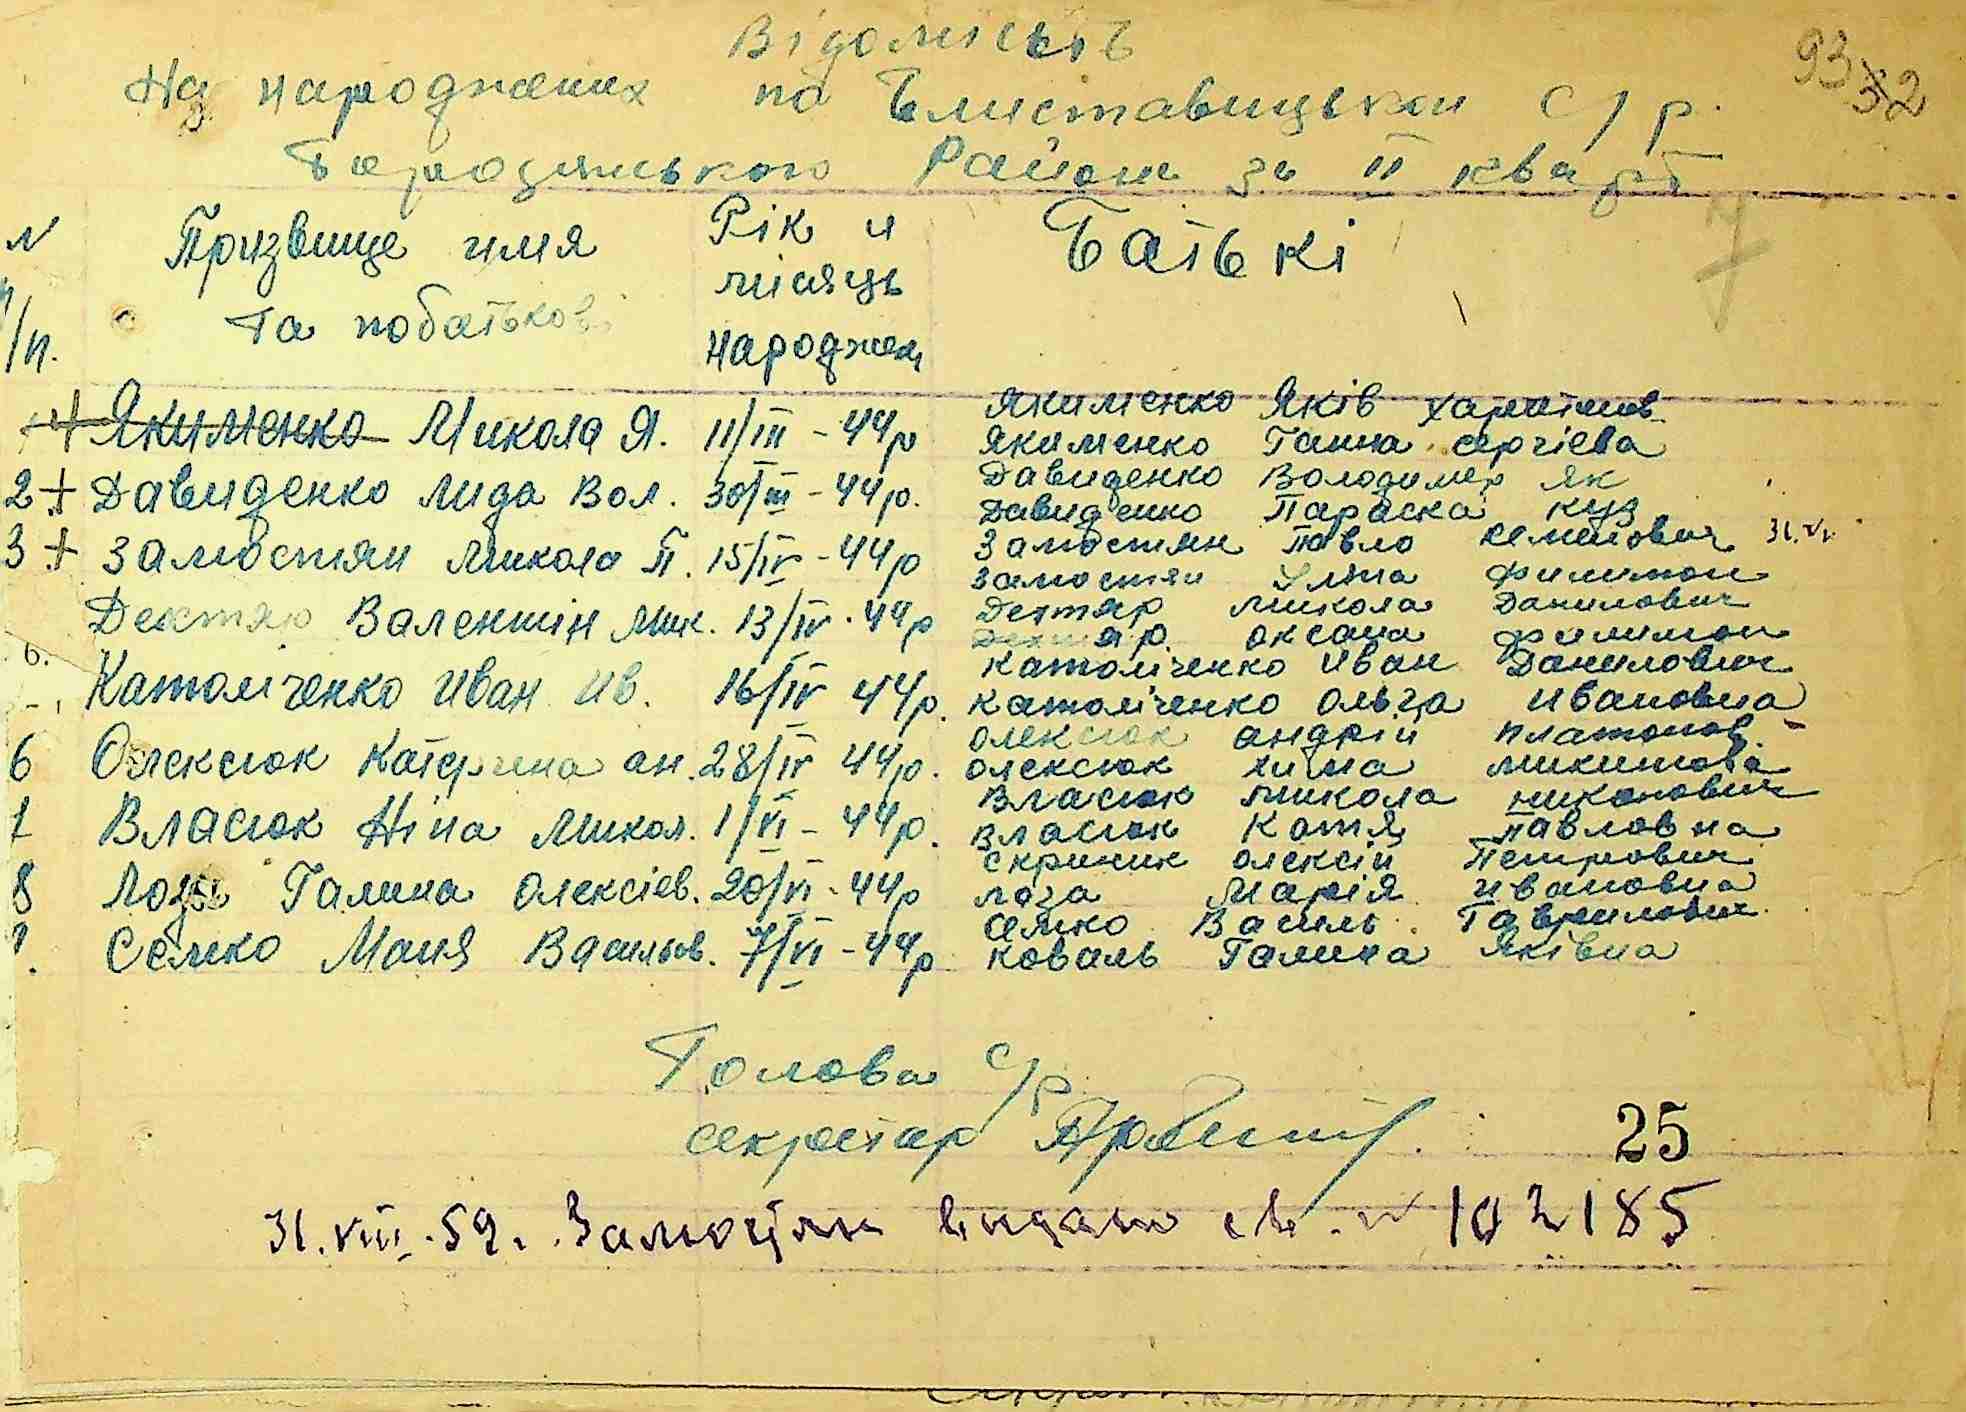 Відомість
93
32
На народжених по Блиставицькои с/р.
Бородянського Району за II кварт
N п/п. Призвище имя та побатькові Рік и місяць народжен Батькі
1 + Якименко Микола Я. 11/III - 44р Якименко Яків Харитонов
Якименко Ганна Сергіева
2 + Давиденко Лида Вол. 30/III - 44р. Давиденко Володимер Як
Давиденко Параска Куз
3 + Замостян Микола П. 15/IV - 44р Замостян Павло Семенович 31.VI
Замостян Уляна Филимон
Дехтяр Валентин Мик. 13/IV. 44р Дехтяр Микола Данилович
Дехтяр. Оксана Филимон
Католіченко Иван Ив. 16/IV 44р. Католіченко Иван Данилович
Католіченко Ольга Ивановна
6 Олексюк Катерина Ан. 28/IV 44р. Олексюк Андрій Платонов.
Олексюк Химa Микитова
7 Власюк Ніна Микол. 1/VI - 44р. Власюк Микола Никонович
Власюк Катя Павловна
8 Лоза Галина Олексіев. 20/VI - 44р Скрипник Олексій Петрович
Лоза Марія Ивановна
9. Семко Маня Васильов. 7/VI - 44р Семко Василь Гаврилович
Коваль Галина Яківна
Голова с/р.
секретар
25
31.VIII.59. Замостян видано св. N 102185